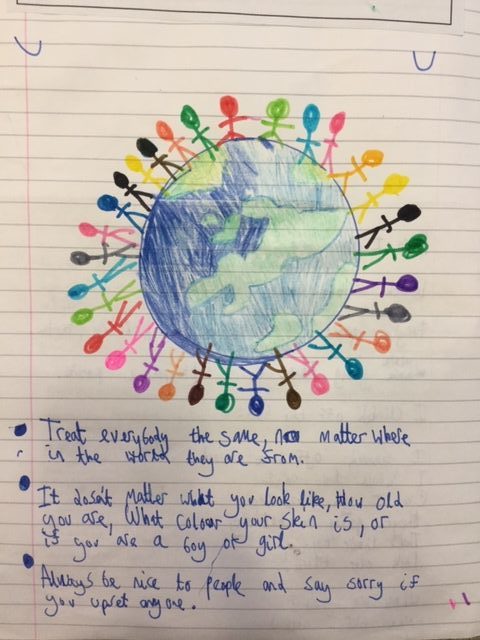 Treat everybody the same, no matter where
in the world they are from.
It dosn't matter what you look like, How old
you are, What Colour your skin is, or
if you are a boy or girl.
Always be nice to people and say sorry if
you upset anyone.